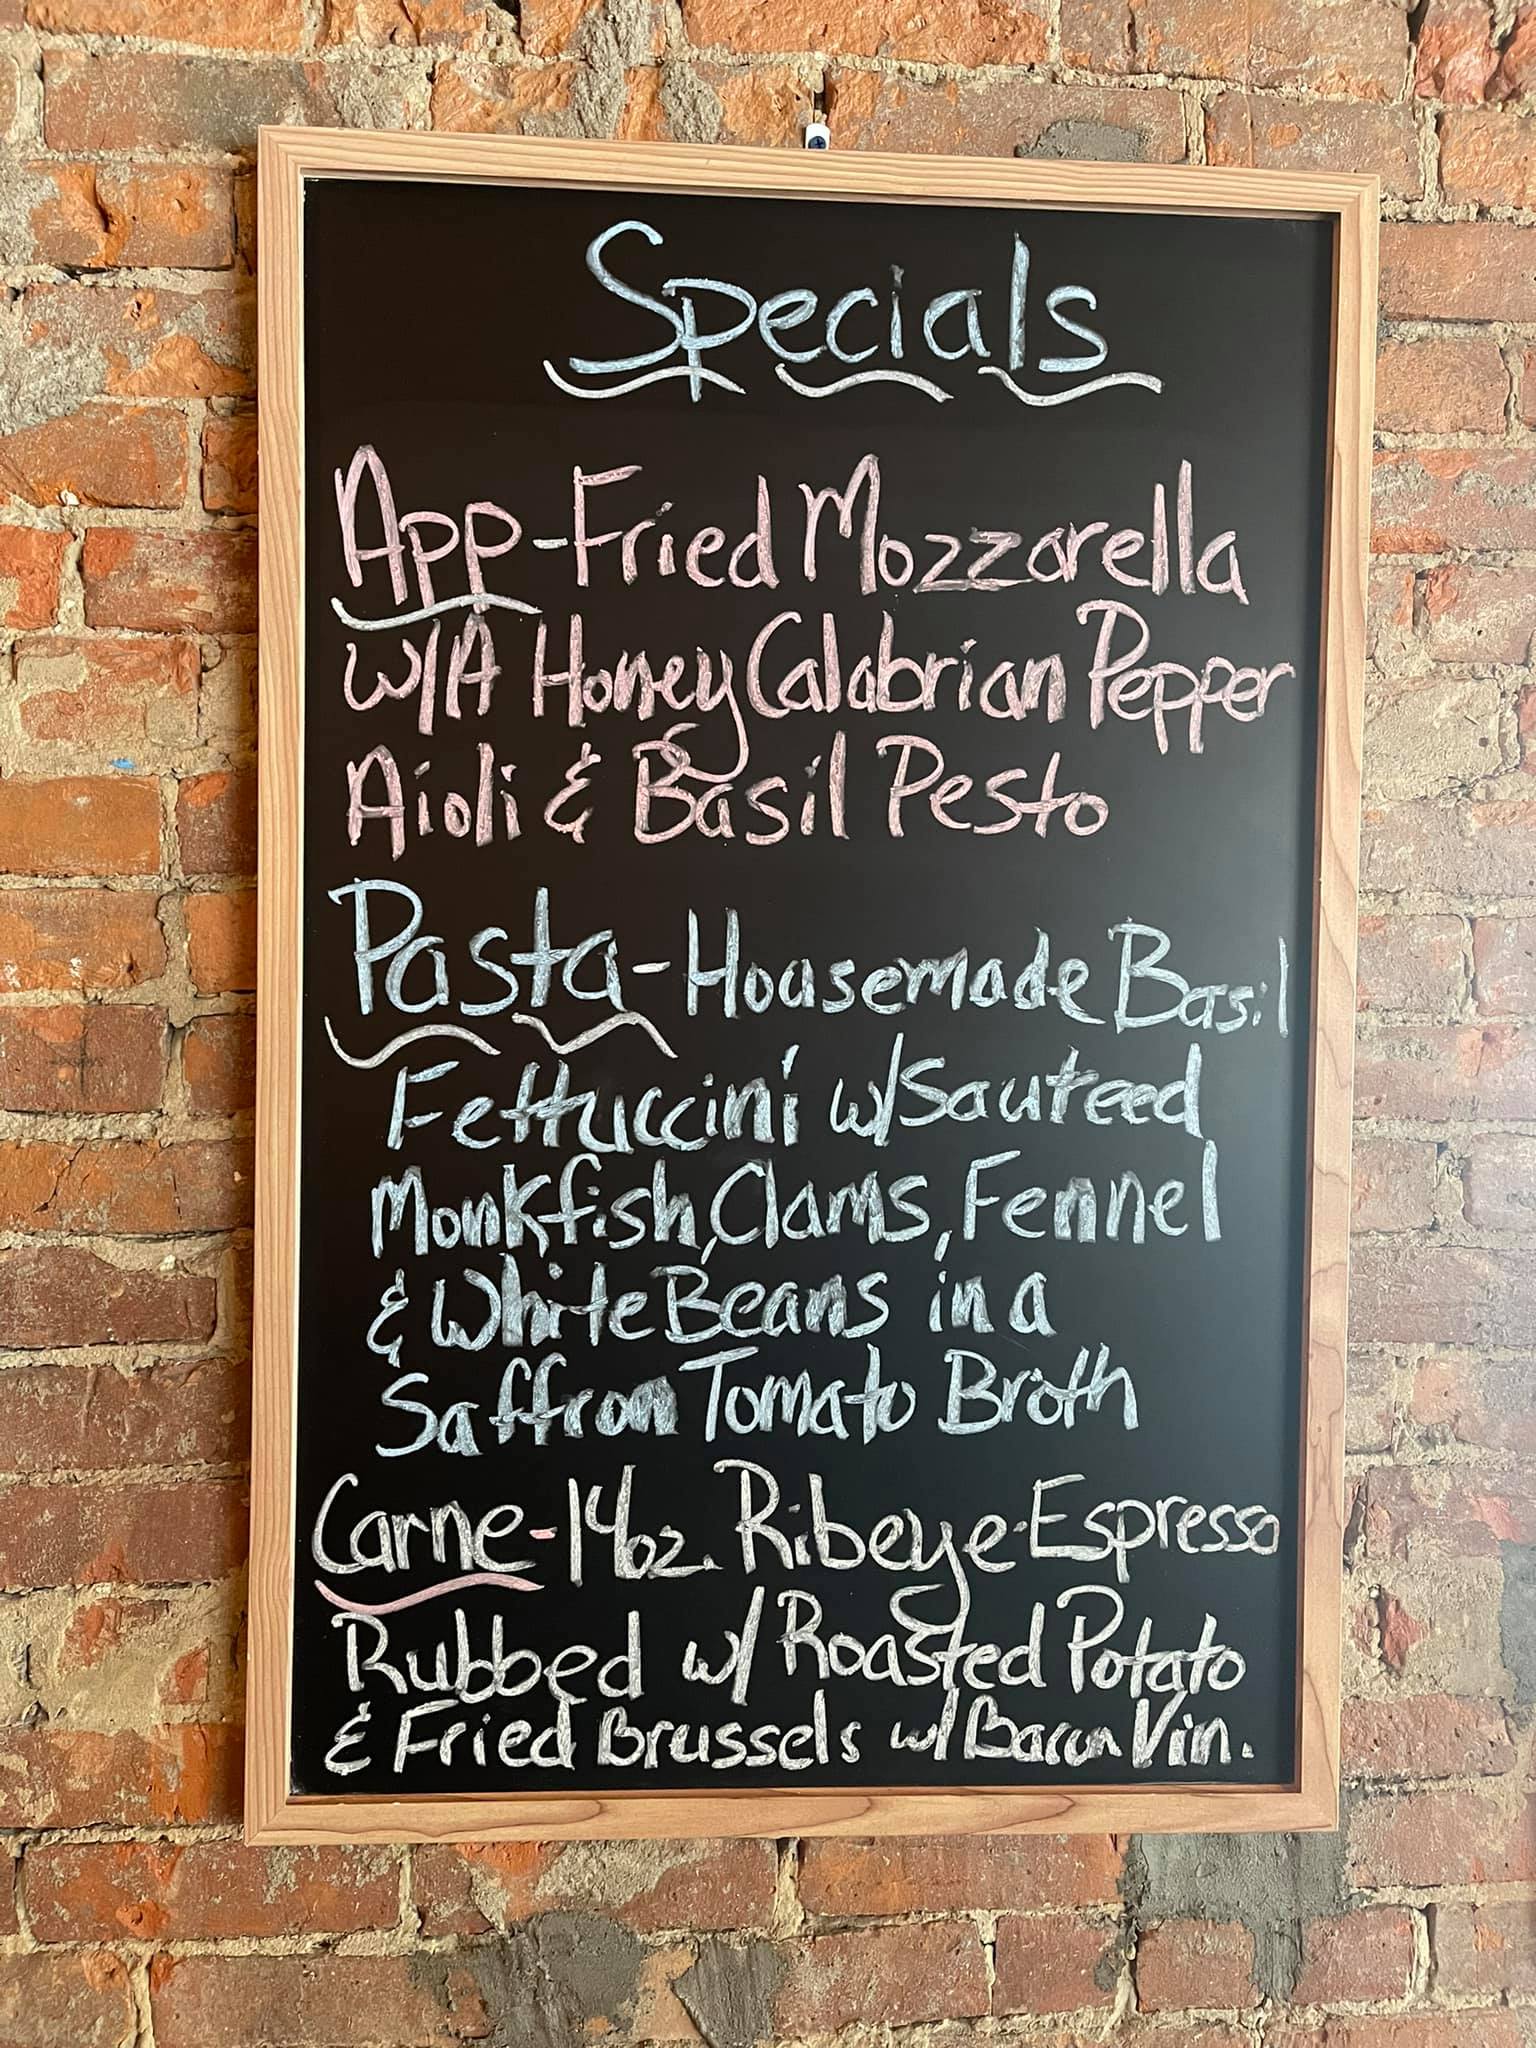 Specials
App-Fried Mozzarella
w/A Honey Calabrian Pepper
Aioli & Basil Pesto
Pasta-Housemade Basil
Fettuccini w/Sauteed
Monkfish, Clams, Fennel
& White Beans in a
Saffron Tomato Broth
Carne-14oz. Ribeye-Espresso
Rubbed w/ Roasted Potato
& Fried Brussels w/ Bacon Vin.